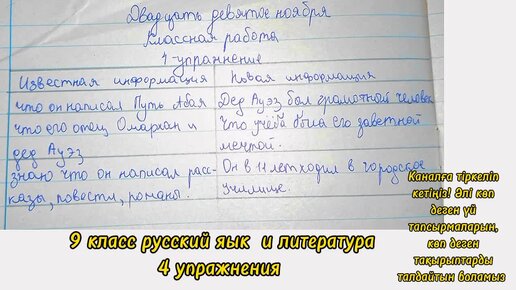 Двадцать девятое ноября
Классная работа
1-упраннение
Известная информация Новая информация
что он написал Путь Абая Дед Ауэз бал грамотной человек
что его отец Омархан и что учёба была его заветной
дед Ауэз мечтой.
знаю что он написал расс- Он в 11 лет ходил в городское
казы, повести, романы. училище.
9 класс русский яык и литература
4 упражнения
Каналға тіркеліп
кетіңіз! Әлі көп
деген үй
тапсырмаларын,
көп деген
тақырыптарды
талдайтын боламыз